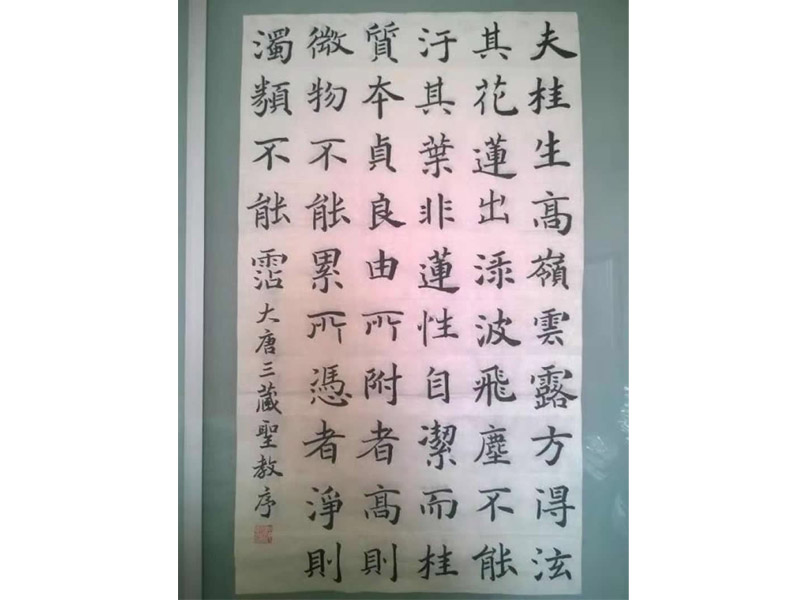 夫桂生高嶺雲露方得泫
其花蓮出渌波飛塵不能
汙其葉非蓮性自潔而桂
質本貞良由所附者高則
微物不能累所憑者淨則
濁類不能霑大唐三藏聖教序